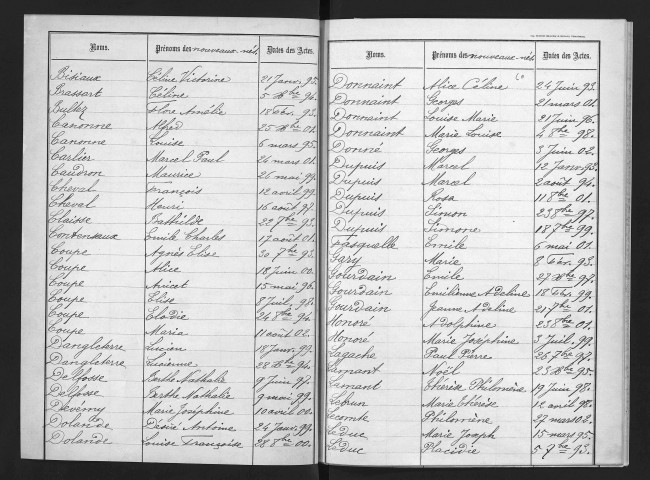 Noms. Prénoms des nouveaux-nés. Dates des Actes.
Bisiaux Céline Victorine 21 Janv. 95.
Brassart Céline 5 Xbre 94.
Flore Amélie 18 93.
Canonne Alfred 25 Xbre 01.
Canonne Louise 6 mars 95.
Carlier Marcel Paul 26 mars 01.
Caudron Maurice 26 mai 99.
Cheval François 12 avril 99.
Cheval Henri 16 août 97.
Claisse Bathilde 22 7bre 93.
Contenseaux Emile Charles 17 août 01.
Coupe Agnès Elise 30 7bre 93.
Coupe Alice 18 Juin 00.
Coupe Anicet 15 mai 96.
Coupe Elise 8 Juil. 98.
Coupe Elodie 24 8bre 94.
Coupe Maria 11 août 02.
Dangleterre Lucien 18 Janv. 99.
Dangleterre Lucienne 28 Xbre 94.
Delfosse Berthe Nathalie 9 Juin 97.
Delfosse Berthe Nathalie 9 mai 99.
Devemy Marie Joséphine 10 avril 00.
Dolande Désiré Antoine 24 Janv. 99.
Dolande Louise Françoise 28 8bre 00.
Noms. Prénoms des nouveaux-nés. Dates des Actes.
Donnaint Alice Céline 24 Juin 93.
Donnaint Georges 21 mars 01.
Donnaint Louise Marie 21 Juin 96.
Donnaint Marie Louise 4 8bre 98.
Donné Georges 3 Juin 02.
Dupuis Marcel 12 Janv. 93.
Dupuis Marcel 2 août 94.
Dupuis Rosa 11 8bre 01.
Dupuis Simon 23 8bre 97.
Dupuis Simone 18 7bre 99.
Fasquelle Emile 6 mai 01.
Gary Marie 8 Fév. 93.
Gourdain Emile 27 Xbre 97.
Gourdain Emilienne Adeline 18 Fév. 99.
Gourdain Jeanne Adeline 21 7bre 01.
Honoré Adolphine 23 8bre 01.
Honoré Marie Joséphine 3 Juil. 99.
Lagache Paul Pierre 26 7bre 97.
Lamant Noël 25 Xbre 95.
Lamant Thérèse Philomène 19 Juin 98.
Lebrun Marie Thérèse 12 avril 98.
Lecomte Philomène 27 mars 02.
Leduc Marie Joseph 15 mars 95.
Leduc Placidie 5 7bre 93.